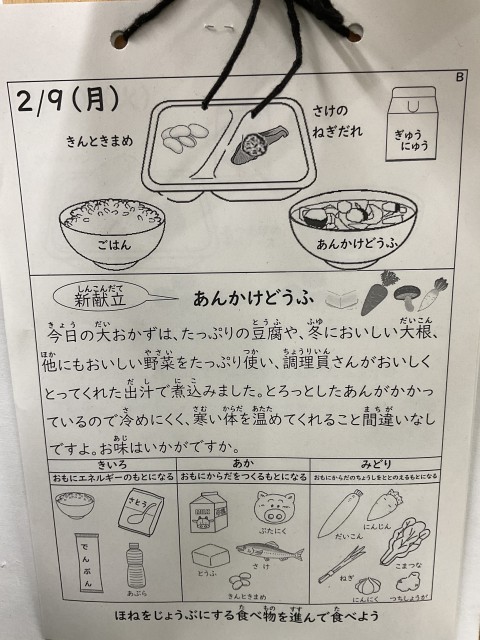 B
2/9(月)
きんときまめ
さけの
ねぎだれ
ぎゅう
にゅう
ごはん
あんかけどうふ
新献立
あんかけどうふ
今日の大おかずは、たっぷりの豆腐や、冬においしい大根、
他にもおいしい野菜をたっぷり使い、調理員さんがおいしく
とってくれた出汁で煮込みました。とろっとしたあんがかかっ
ているので冷めにくく、寒い体を温めてくれること間違いなし
ですよ。お味はいかがですか。
きいろ
あか
みどり
おもにエネルギーのもとになる
おもにからだをつくるもとになる
おもにからだのちょうしをととのえるもとになる
さとう
でんぷん
あぶら
ぶたにく
とうふ
さけ
きんときまめ
だいこん
にんじん
ねぎ
にんにく
こまつな
つちしょうが
ほねをじょうぶにする食べ物を進んで食べよう